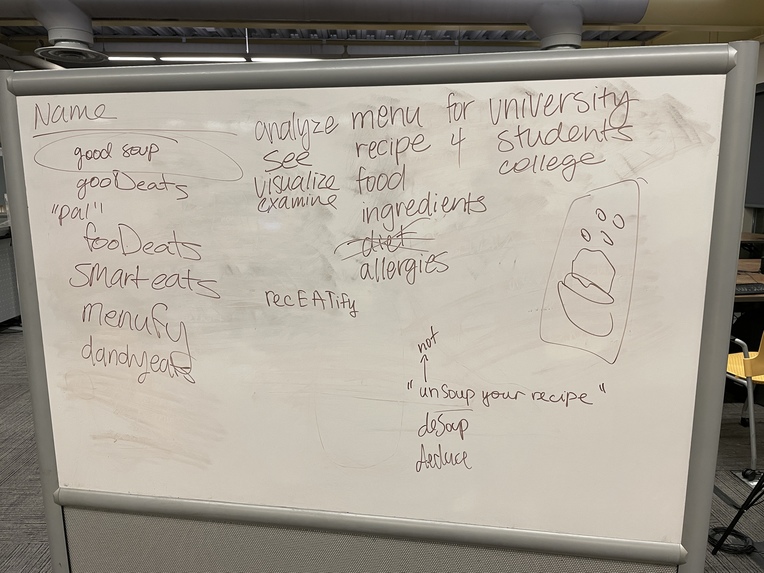 Name
good soup
gooDeats
"pal"
fooDeats
smarteats
menufy
dandyeats
analyze menu for university
see recipe 4 students
visualize food college
examine
ingredients
diet
allergies
recEATify
not
"unSoup your recipe"
deSoup